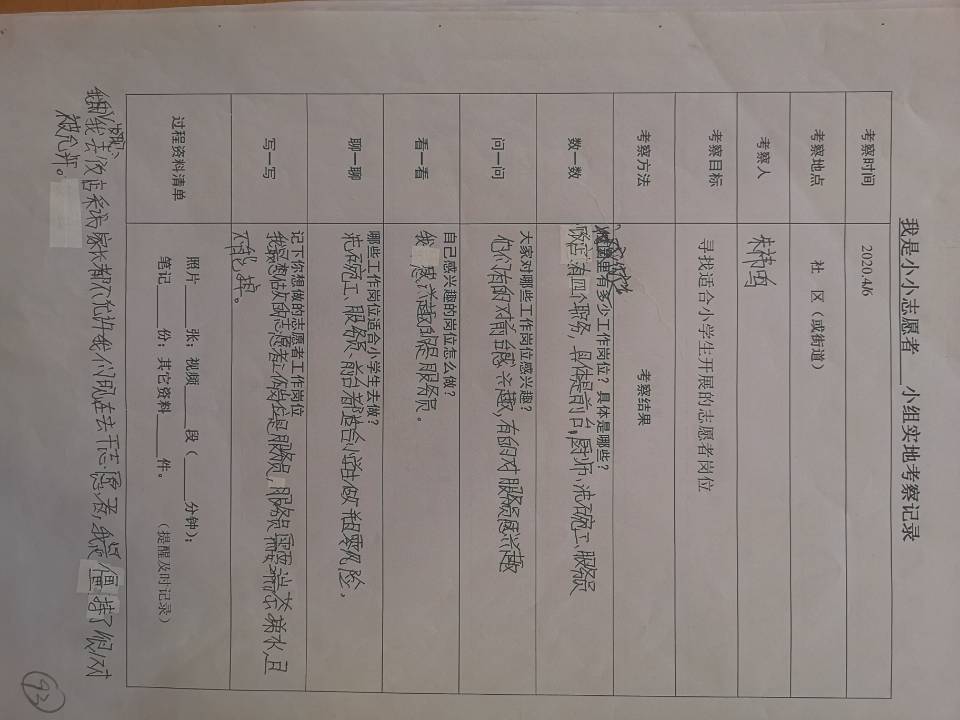 我是小小志愿者____小组实地考察记录
考察时间 2020.4/6
考察地点 社 区（或街道）
考察人
考察目标 寻找适合小学生开展的志愿者岗位
考察方法 考察结果
数一数 里有多少工作岗位？具体是哪些？
饭店有四个职务，具体是前台，厨师、洗碗工、服务员
问一问 大家对哪些工作岗位感兴趣？
他们有的对前台感兴趣，有的对服务员感兴趣
看一看 自己感兴趣的岗位怎么做？
我感兴趣的是服务员。
聊一聊 哪些工作岗位适合小学生去做？
洗碗工、服务员、前台都适合小学生做 零风险，
写一写 记下你想做的志愿者工作岗位
我最想做的志愿者工作岗位是服务员，服务员需要 茶 水，且
不能 掉。
过程资料清单 照片____张；视频____段（____分钟）；
笔记____份；其它资料____件。 （提醒及时记录）
我去饭店采访 家长都不允许我们现在去干志愿者，我 了很 对
被允许。
93